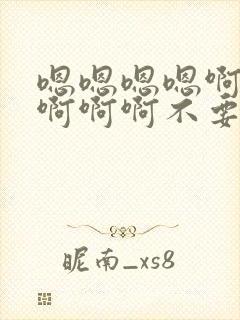 嗯嗯嗯嗯啊
啊啊啊不要
昵南_xs8